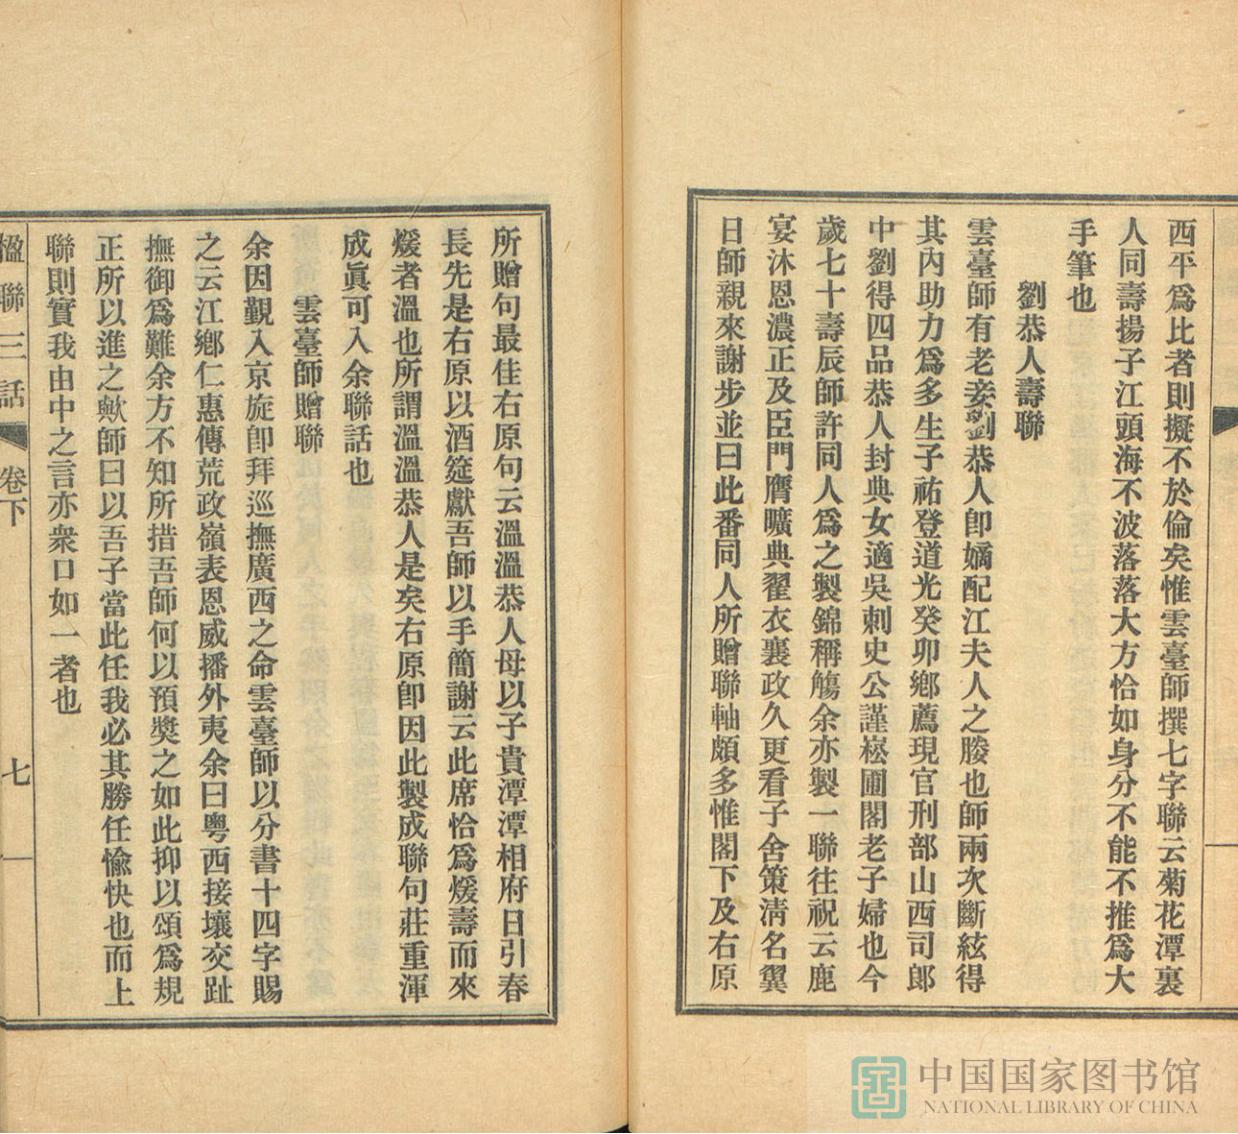 西平爲比者則擬不於倫矣惟雲臺師撰七字聯云菊花潭裏
人同壽揚子江頭海不波落落大方恰如身分不能不推爲大
手筆也
劉恭人壽聯
雲臺師有老妾劉恭人卽嫡配江夫人之媵也師兩次斷絃得
其內助力爲多生子祐登道光癸卯鄉薦現官刑部山西司郎
中劉得四品恭人封典女適吳刺史公謹崧圃閣老子婦也今
歲七十壽辰師許同人爲之製錦稱觴余亦製一聯往祝云鹿
宴沐恩濃正及臣門膺曠典翟衣襄政久更看子舍策淸名翼
日師親來謝步並曰此番同人所贈聯軸頗多惟閣下及右原
所贈句最佳右原句云溫溫恭人母以子貴潭潭相府日引春
長先是右原以酒筵獻吾師以手簡謝云此席恰爲煖壽而來
煖者溫也所謂溫溫恭人是矣右原卽因此製成聯句莊重渾
成眞可入余聯話也
雲臺師贈聯
余因覲入京旋卽拜巡撫廣西之命雲臺師以分書十四字賜
之云江鄕仁惠傳荒政嶺表恩威播外夷余曰粵西接壤交趾
撫御爲難余方不知所措吾師何以預獎之如此抑以頌爲規
正所以進之歟師曰以吾子當此任我必其勝任愉快也而上
聯則實我由中之言亦衆口如一者也
楹聯三話 卷下 七
中国国家图书馆
NATIONAL LIBRARY OF CHINA